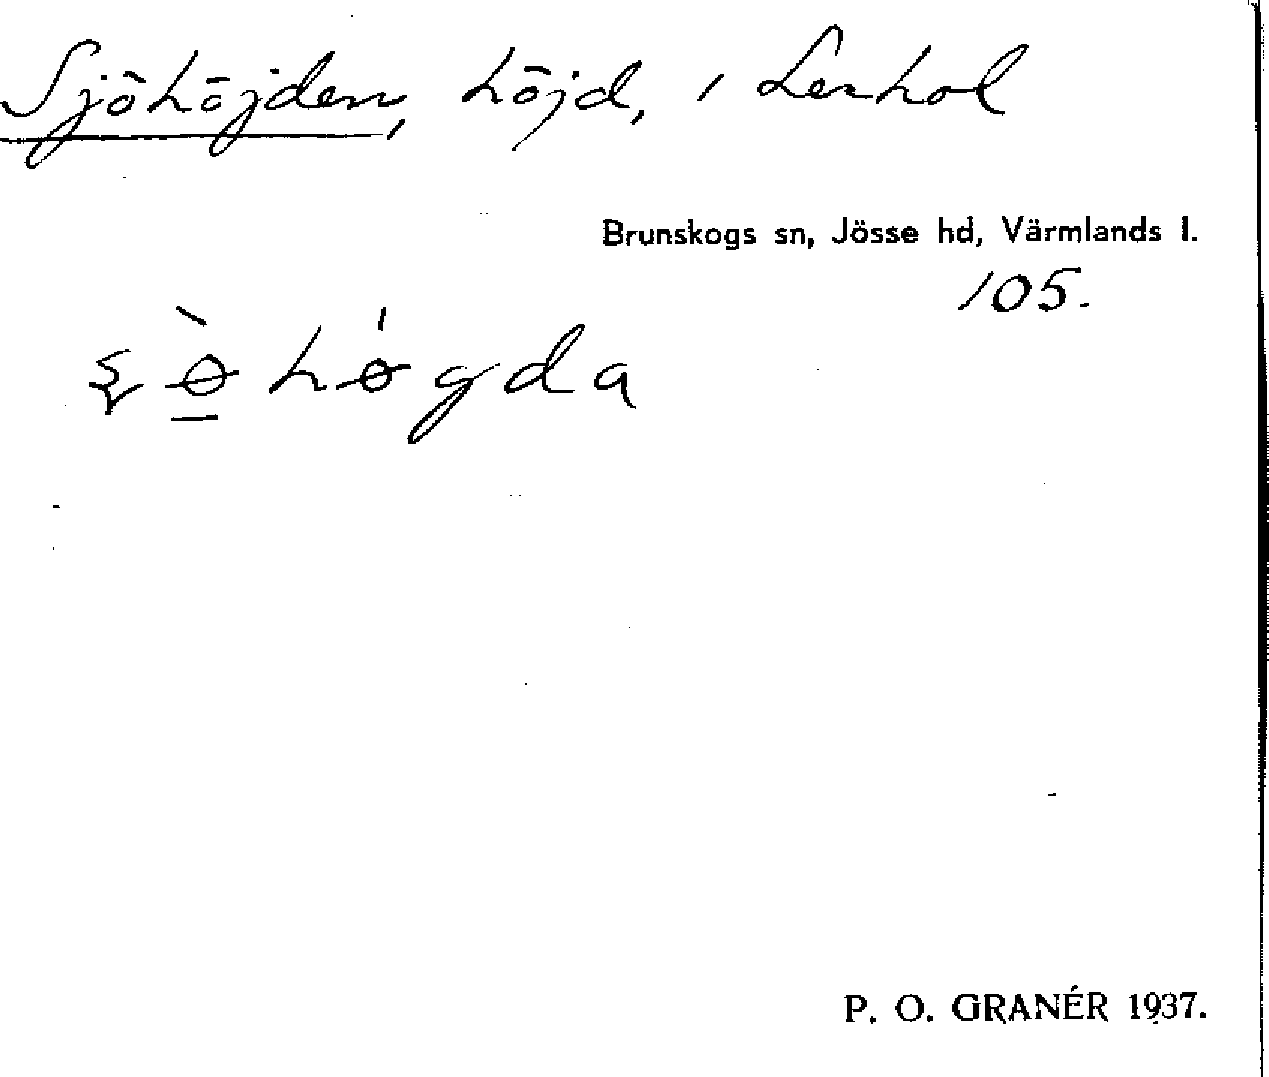 Sjöhöjden, höjd, i Lerhol
Brunskogs sn, Jösse hd, Värmlands l.
105.
P. O. GRANÉR 1937.